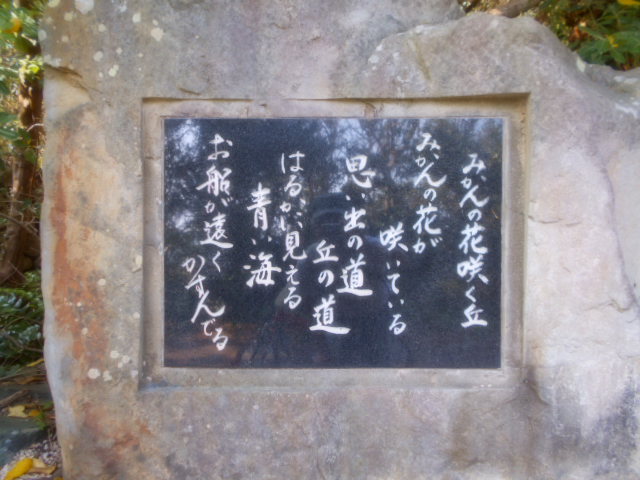 みかんの花咲く丘
みかんの花が
咲いている
思い出の道
丘の道
はるかに見える
青い海
お船が遠く
かすんでる